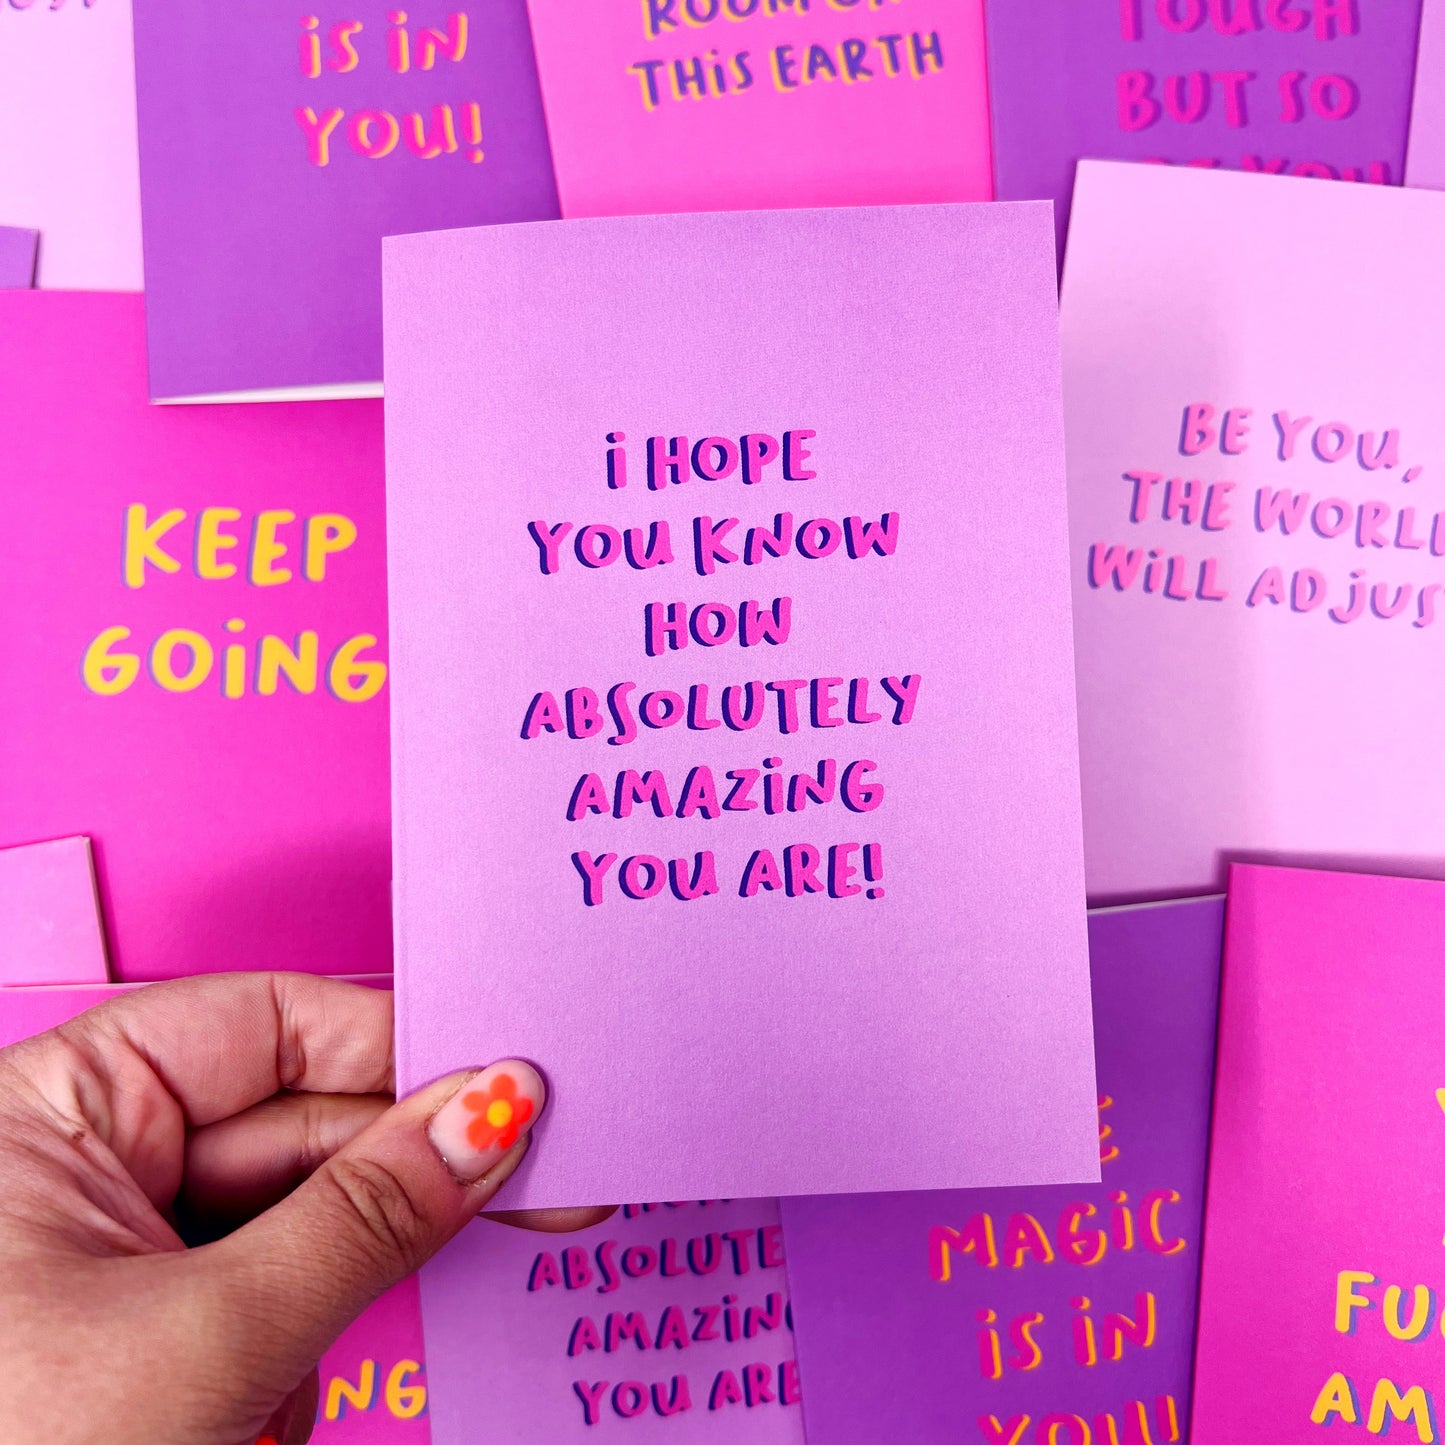 iS iN
YOU!
THiS EARTH
TOUGH
BUT SO
KEEP
GOiNG
i HOPE
YOU KNOW
HOW
ABSOLUTELY
AMAZiNG
YOU ARE!
BE YOU,
THE
WiLL
ABSOLUTE
AMAZiN
YOU ARE
MAGiC
iS iN
YOU!
NG
FU
AM